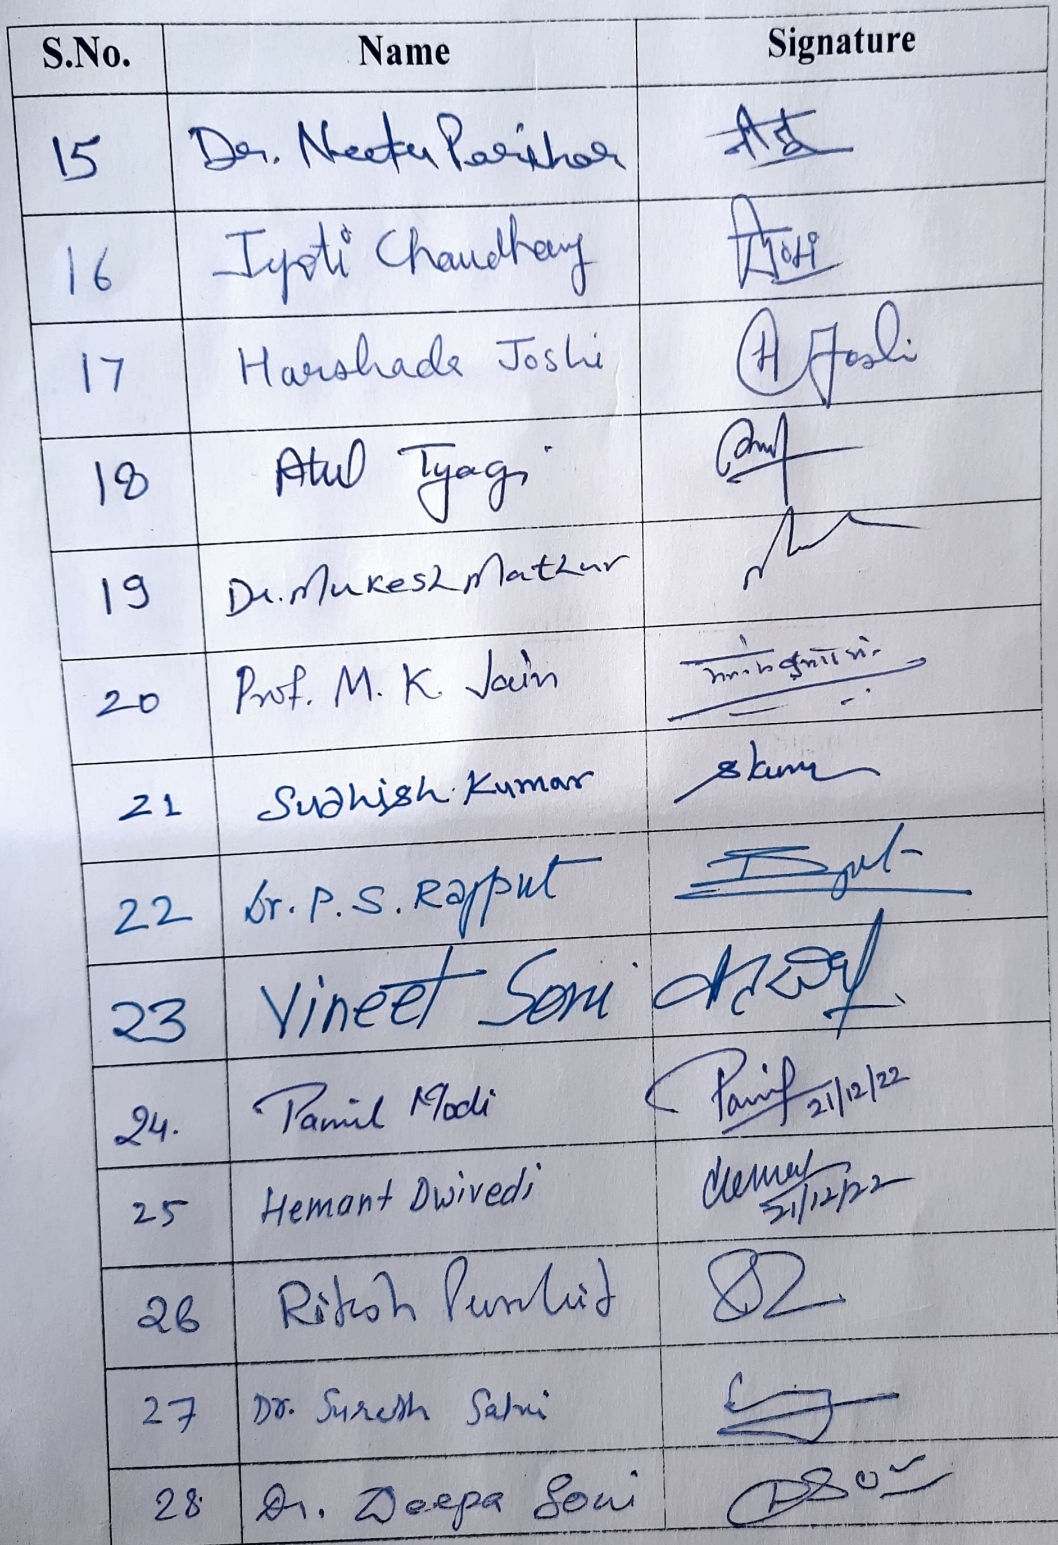 S.No. Name Signature
15 Dr. Neetu Parihar नीतू
16 Jyoti Chaudhary
17 Harshada Joshi H Joshi
18 Atul Tyagi
19 Dr. Mukesh Mathur
20 Prof. M. K. Jain
21 Sudhish Kumar skum
22 Dr. P. S. Rajput
23 Vineet Soni
24. Pamil Modi 21/12/22
25 Hemant Dwivedi 21/12/22
26 Ritesh Purohit
27 Dr. Suresh Salvi
28 Dr. Deepa Soni DSoni